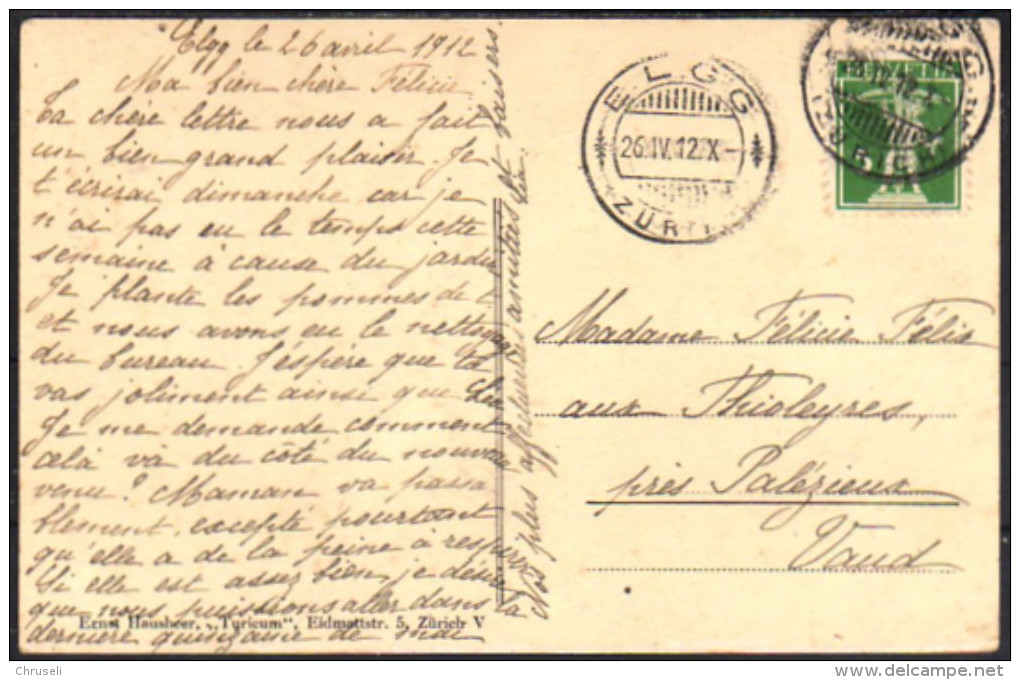 Elgg le 26 avril 1912
Ma bien chère Félicie
Ta chère lettre nous a fait
un bien grand plaisir. Je
t'écrirai dimanche car je
n'ai pas eu le temps cette
semaine à cause du jardin
Je plante les pommes de t.
et nous avons eu le nettoyage
du bureau. J'espère que tu
vas joliment ainsi que
Je me demande comment
celà va du côté du nouveau
venu? Maman va passa
blement, excepté pourtant
qu'elle a de la peine à respirer
Si elle est assez bien, je désire
que nous puissions aller dans la
dernière quinzaine de mai
Nos plus affectueuses amitiés et baisers
Ernst Hausheer, „Turicum“, Eidmattstr. 5, Zürich V
ELGG
26.IV.12.X-
ZÜRICH
ELGG
26.IV.12.X-
(ZÜRICH)
HELVETIA
Madame Félicie Félix
aux Thioleyres,
près Palézieux
Vaud
Chruseli
delcampe.net